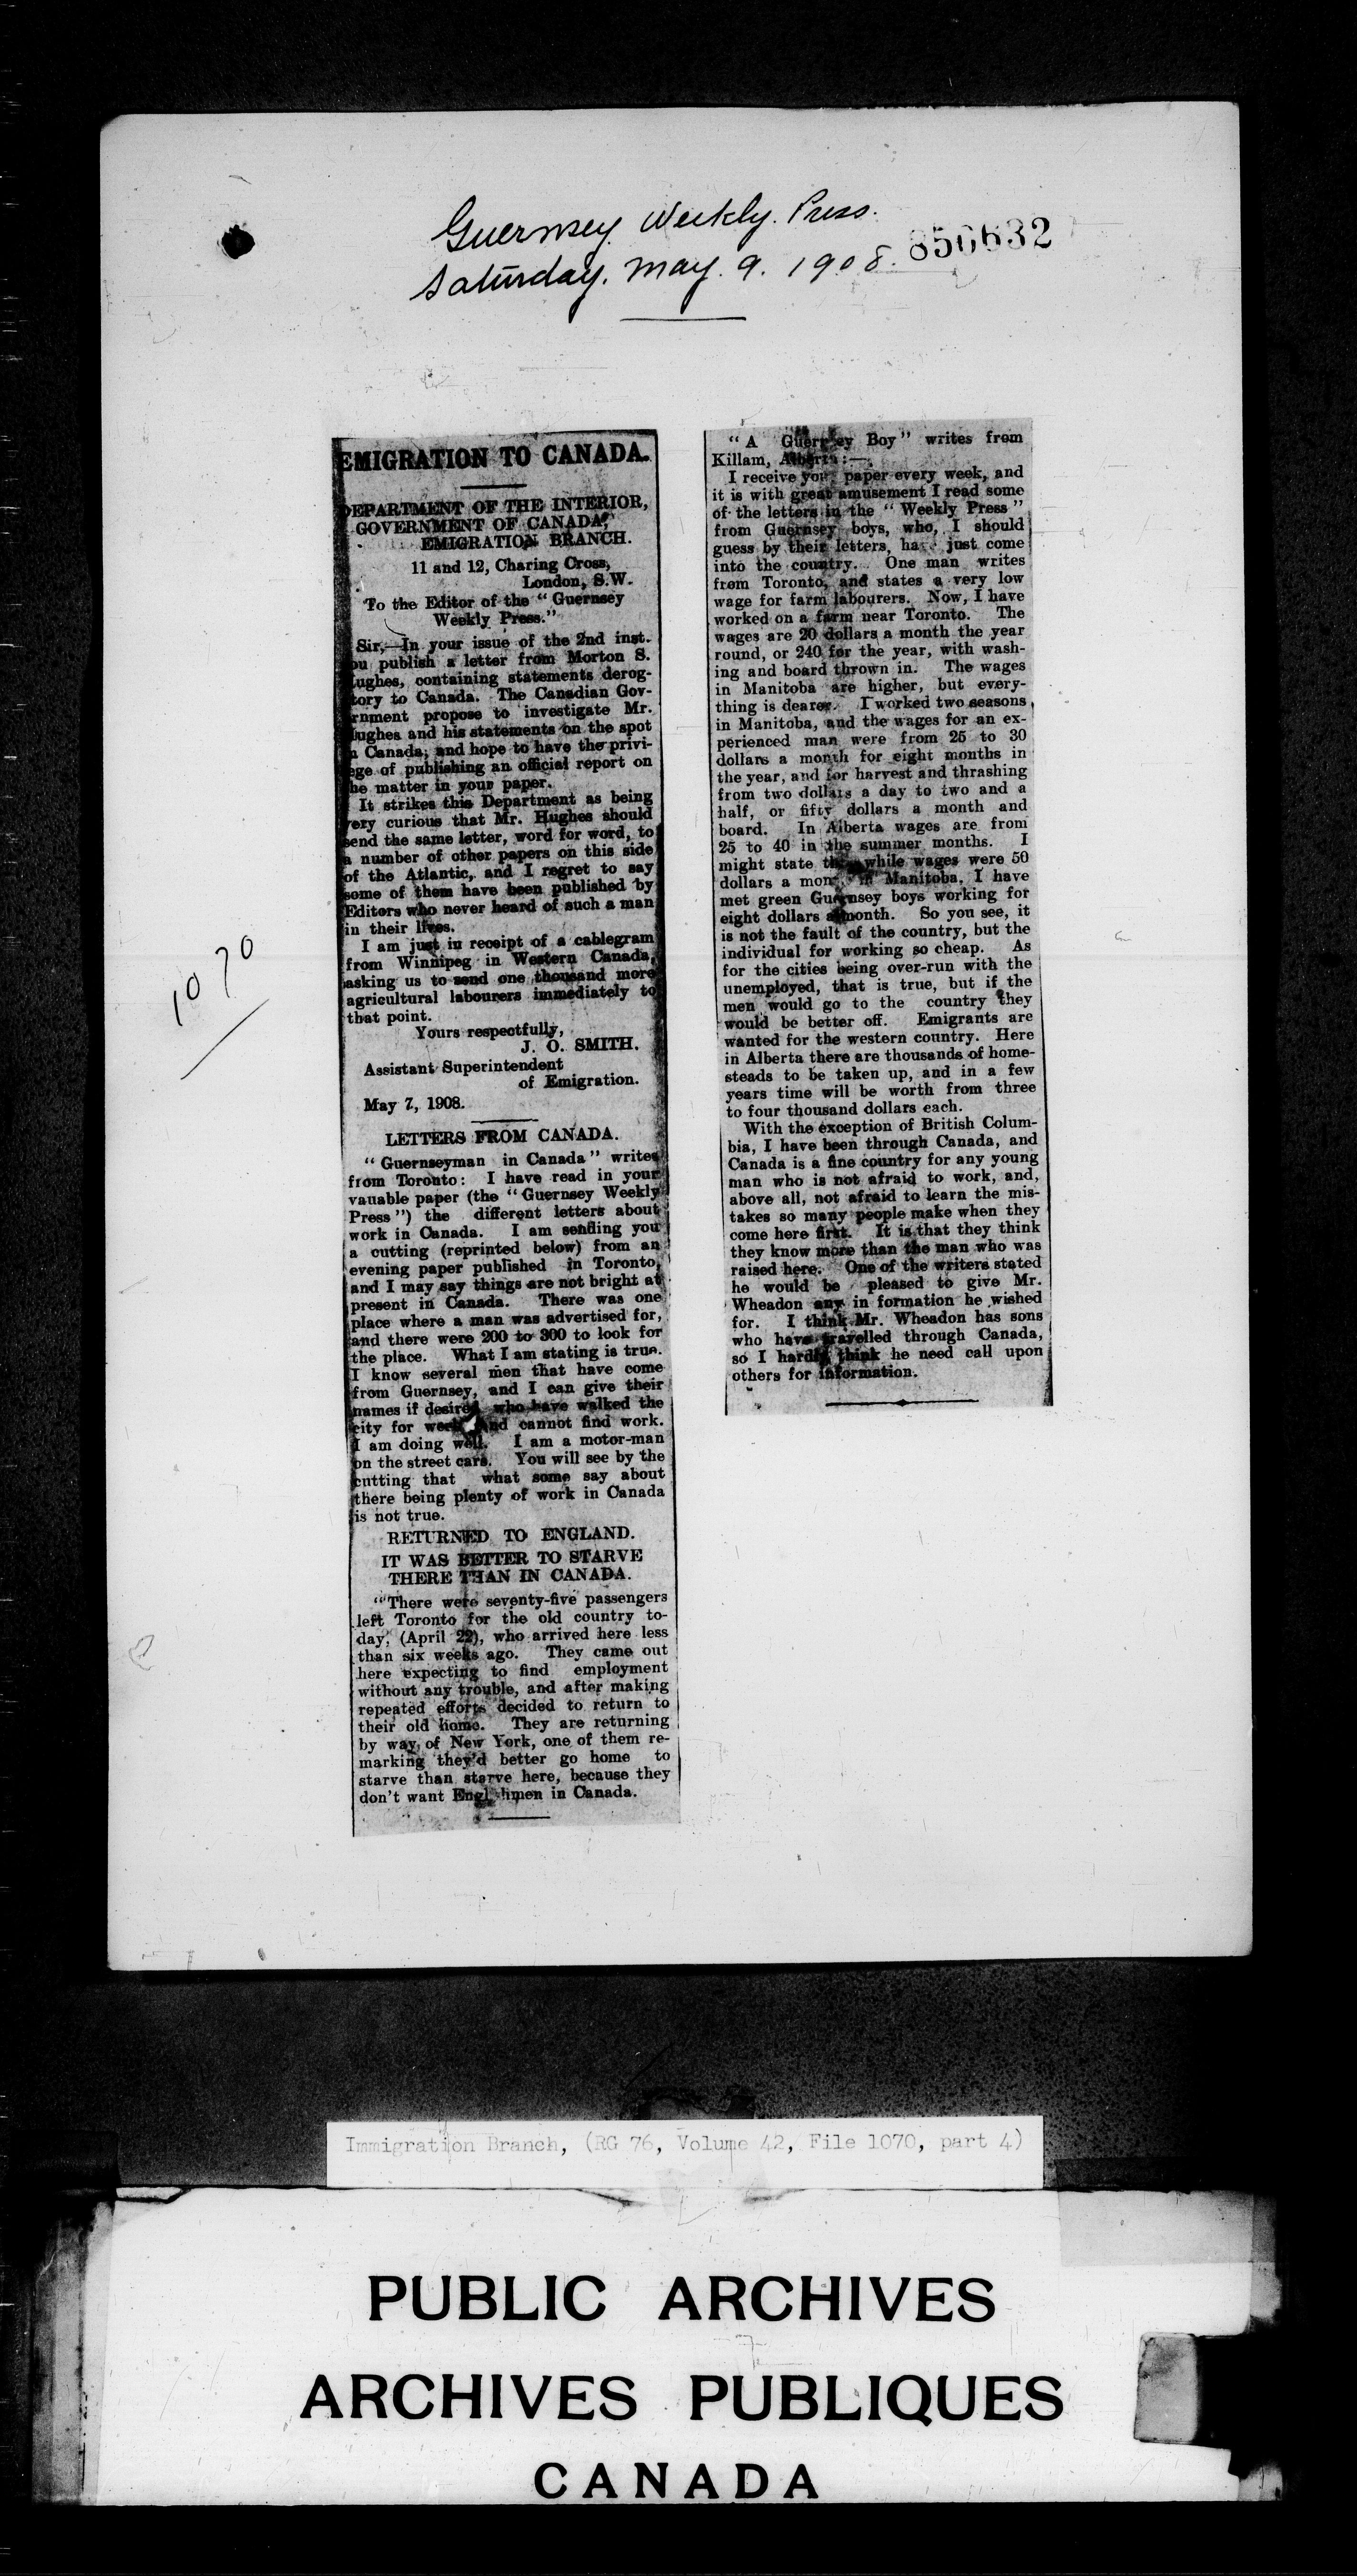 Guernsey Weekly Press.
Saturday. May. 9. 1908.
856632
1070
EMIGRATION TO CANADA.
DEPARTMENT OF THE INTERIOR,
GOVERNMENT OF CANADA,
EMIGRATION BRANCH.
11 and 12, Charing Cross,
London, S.W.
To the Editor of the "Guernsey
Weekly Press."
Sir,—In your issue of the 2nd inst.
ou publish a letter from Morton S.
ughes, containing statements derog-
tory to Canada. The Canadian Gov-
rnment propose to investigate Mr.
Hughes and his statements on the spot
n Canada, and hope to have the privi-
ege of publishing an official report on
he matter in your paper.
It strikes this Department as being
very curious that Mr. Hughes should
send the same letter, word for word, to
a number of other papers on this side
of the Atlantic, and I regret to say
some of them have been published by
Editors who never heard of such a man
in their lives.
I am just in receipt of a cablegram
from Winnipeg in Western Canada,
asking us to send one thousand more
agricultural labourers immediately to
that point.
Yours respectfully,
J. O. SMITH.
Assistant Superintendent
of Emigration.
May 7, 1908.
LETTERS FROM CANADA.
"Guernseyman in Canada" writes
from Toronto: I have read in your
vauable paper (the "Guernsey Weekly
Press") the different letters about
work in Canada. I am sending you
a cutting (reprinted below) from an
evening paper published in Toronto,
and I may say things are not bright at
present in Canada. There was one
place where a man was advertised for,
and there were 200 to 300 to look for
the place. What I am stating is true.
I know several men that have come
from Guernsey, and I can give their
names if desired who have walked the
city for work and cannot find work.
I am doing well. I am a motor-man
on the street cars. You will see by the
cutting that what some say about
there being plenty of work in Canada
is not true.
RETURNED TO ENGLAND.
IT WAS BETTER TO STARVE
THERE THAN IN CANADA.
"There were seventy-five passengers
left Toronto for the old country to-
day, (April 22), who arrived here less
than six weeks ago. They came out
here expecting to find employment
without any trouble, and after making
repeated efforts decided to return to
their old home. They are returning
by way of New York, one of them re-
marking they'd better go home to
starve than starve here, because they
don't want Englishmen in Canada.
"A Guernsey Boy" writes from
Killam, Alberta:—
I receive your paper every week, and
it is with great amusement I read some
of the letters in the "Weekly Press"
from Guernsey boys, who, I should
guess by their letters, have just come
into the country. One man writes
from Toronto, and states a very low
wage for farm labourers. Now, I have
worked on a farm near Toronto. The
wages are 20 dollars a month the year
round, or 240 for the year, with wash-
ing and board thrown in. The wages
in Manitoba are higher, but every-
thing is dearer. I worked two seasons
in Manitoba, and the wages for an ex-
perienced man were from 25 to 30
dollars a month for eight months in
the year, and for harvest and thrashing
from two dollars a day to two and a
half, or fifty dollars a month and
board. In Alberta wages are from
25 to 40 in the summer months. I
might state that while wages were 50
dollars a month in Manitoba, I have
met green Guernsey boys working for
eight dollars a month. So you see, it
is not the fault of the country, but the
individual for working so cheap. As
for the cities being over-run with the
unemployed, that is true, but if the
men would go to the country they
would be better off. Emigrants are
wanted for the western country. Here
in Alberta there are thousands of home-
steads to be taken up, and in a few
years time will be worth from three
to four thousand dollars each.
With the exception of British Colum-
bia, I have been through Canada, and
Canada is a fine country for any young
man who is not afraid to work, and,
above all, not afraid to learn the mis-
takes so many people make when they
come here first. It is that they think
they know more than the man who was
raised here. One of the writers stated
he would be pleased to give Mr.
Wheadon any in formation he wished
for. I think Mr. Wheadon has sons
who have travelled through Canada,
so I hardly think he need call upon
others for information.
Immigration Branch, (RG 76, Volume 42, File 1070, part 4)
PUBLIC ARCHIVES
ARCHIVES PUBLIQUES
CANADA